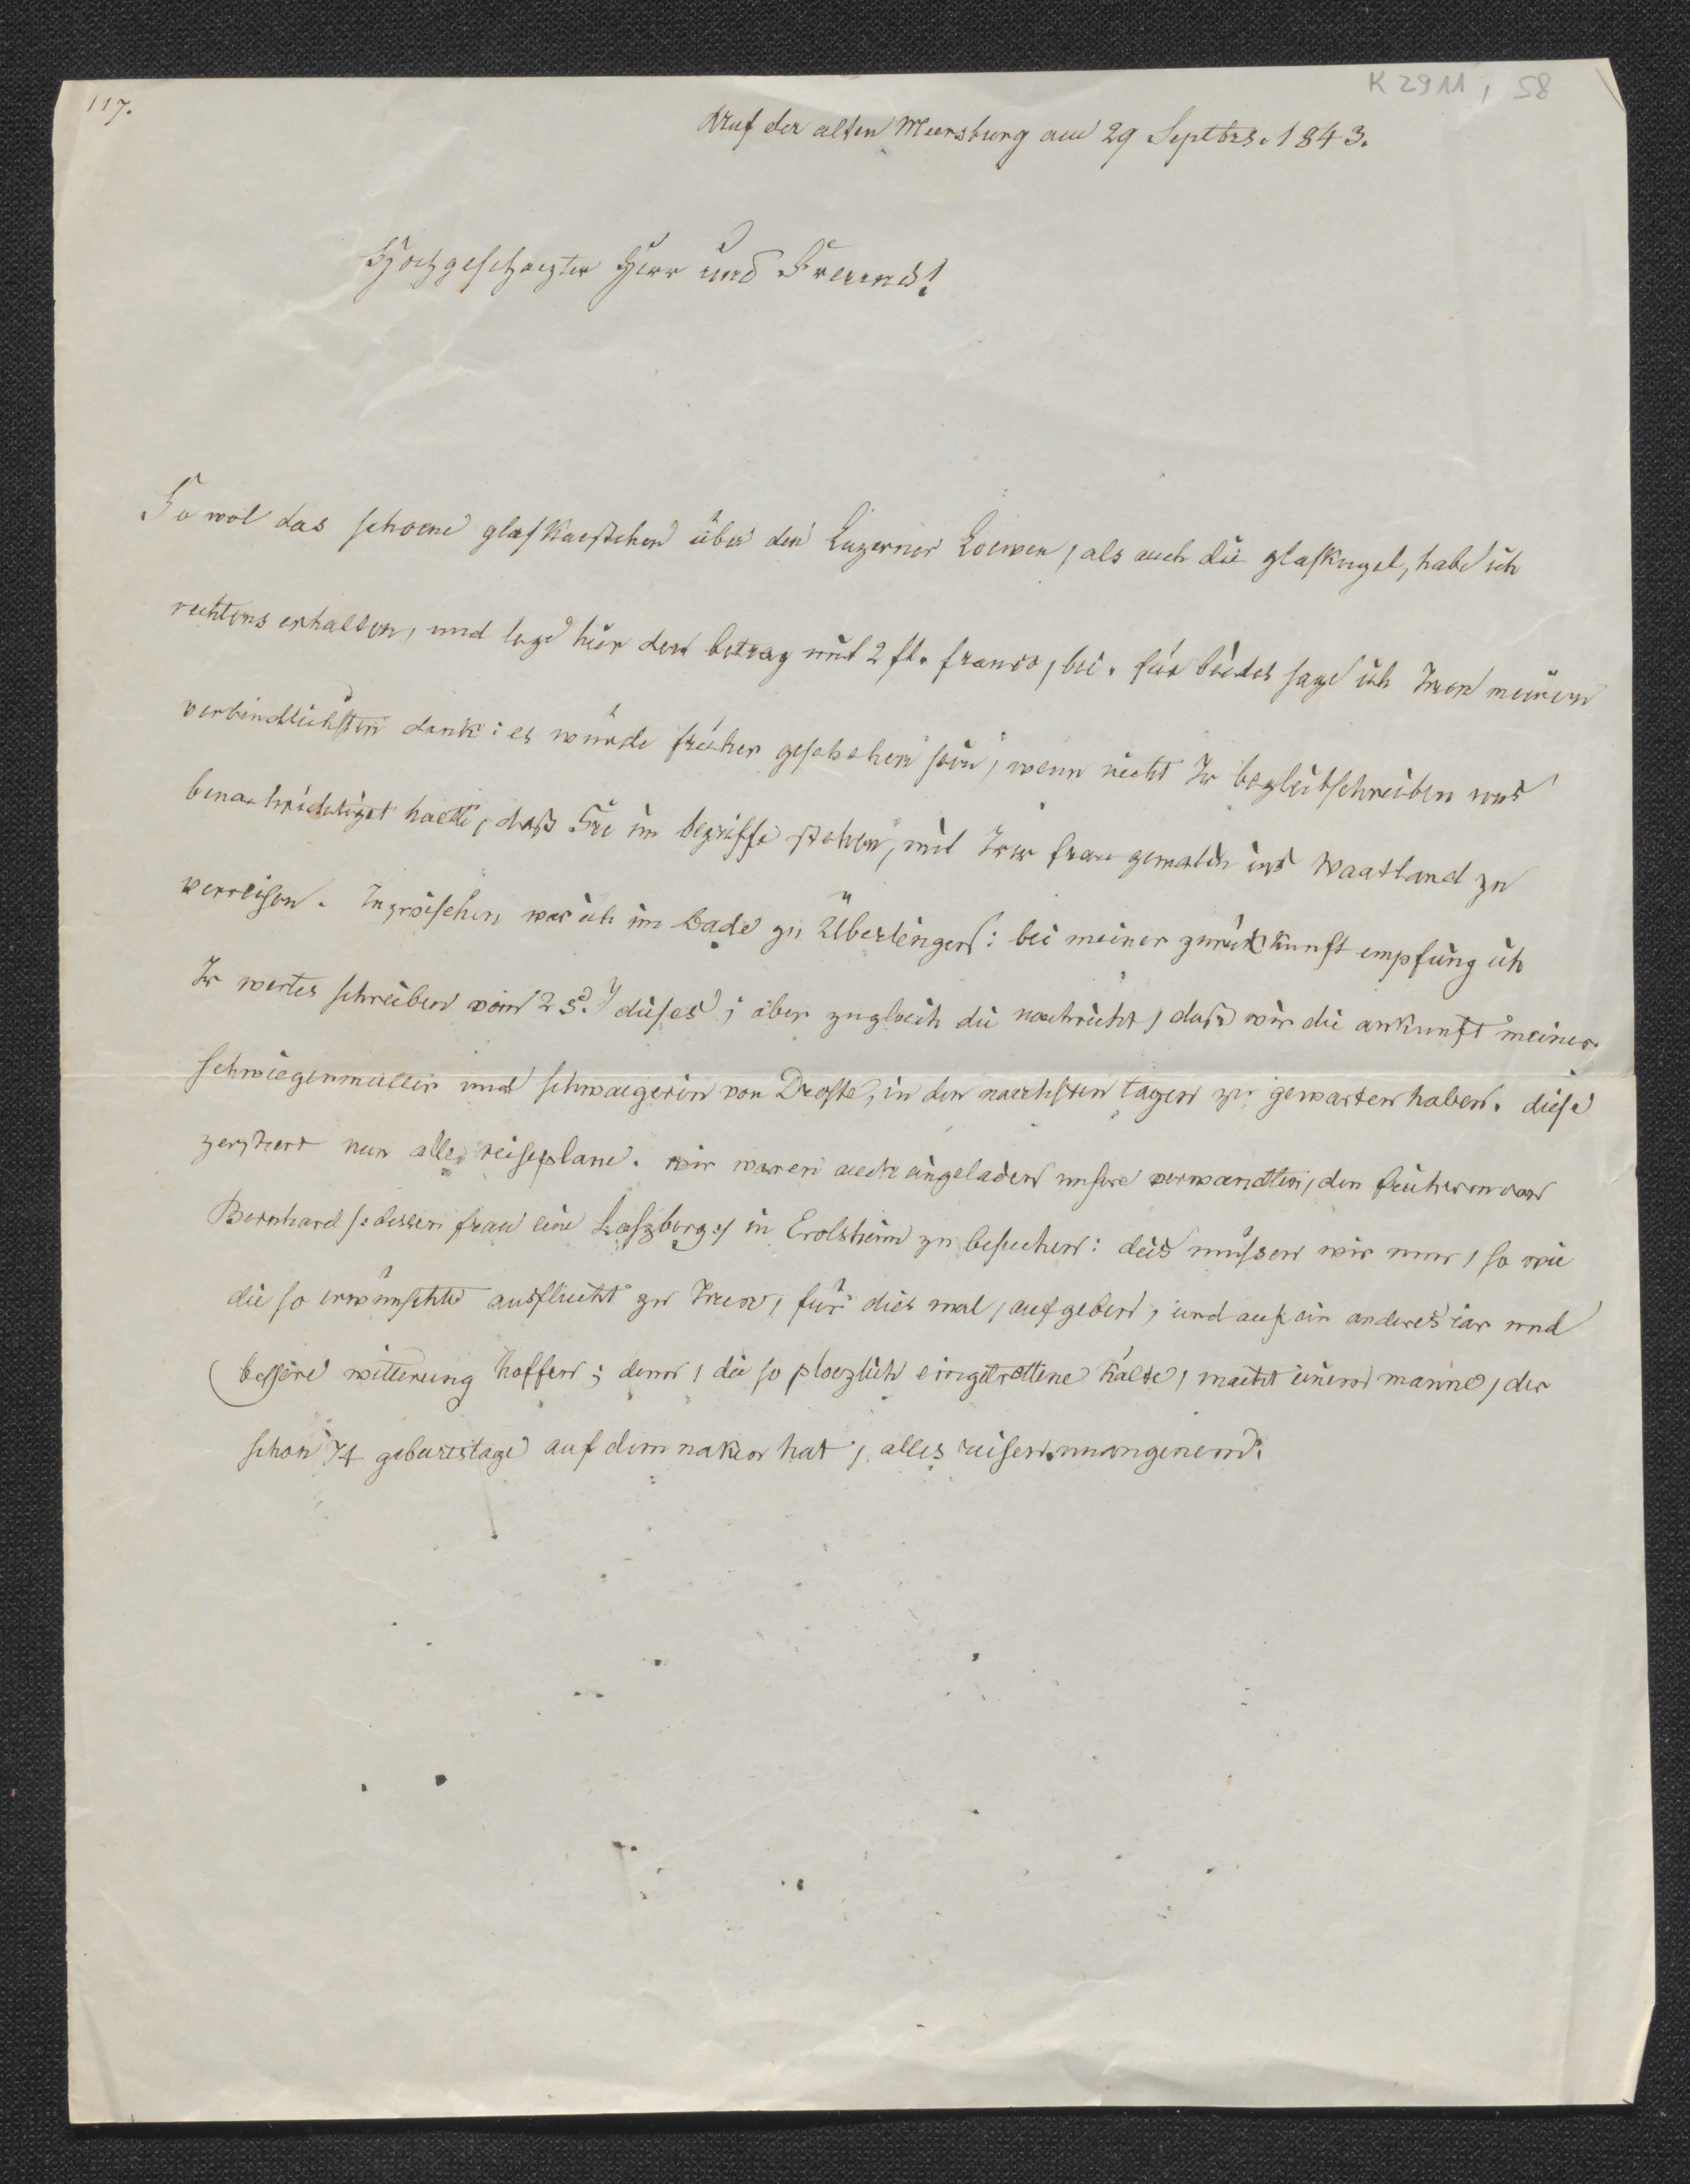 117.
K 2911, 58
Auf der alten Meersburg am 29 Septbrs. 1843.
Hochgeschaezter Herr und Freund!
So wol das schoene glaskaestchen über den Luzerner Loewen, als auch die glaskugel, habe ich
rechtens erhalten, und lege hier den betrag mit 2 fl. franco, bei. für beides sage ich Iren meinen
verbindlichsten dank: es würde früher geschehen sein, wenn nicht Ir begleitschreiben uns
benachrichtiget haette, daß Sie im begriffe stehen, mit Irer frau gemalin ins Waatland zu
verreisen. Inzwischen war ich im bade zu Überlingen: bei meiner zurükkunft empfing ich
Ir wertes schreiben vom 25. dieses; aber zugleich die nachricht, daß wir die ankunft meiner
schwiegermutter und schwaegerin von Droste, in den naechsten tagen zu gewarten haben. diese
zerstoert nun alle reiseplane. wir waren auch eingeladen unsere verwandten, den freiherrn von
Bernhard /: dessen frau eine Laszberg :/ in Erolsheim zu besuchen: dies müssen wir nun, so wie
die so erwünschte ausflucht zu Iren, für dies mal, aufgeben, und auf ein anderes iar und
bessere witterung hoffen; denn, die so ploezlich eingetrettene kälte, macht einem manne, der
schon 74 geburtstage auf dem naken hat, alles reisen unangenem.